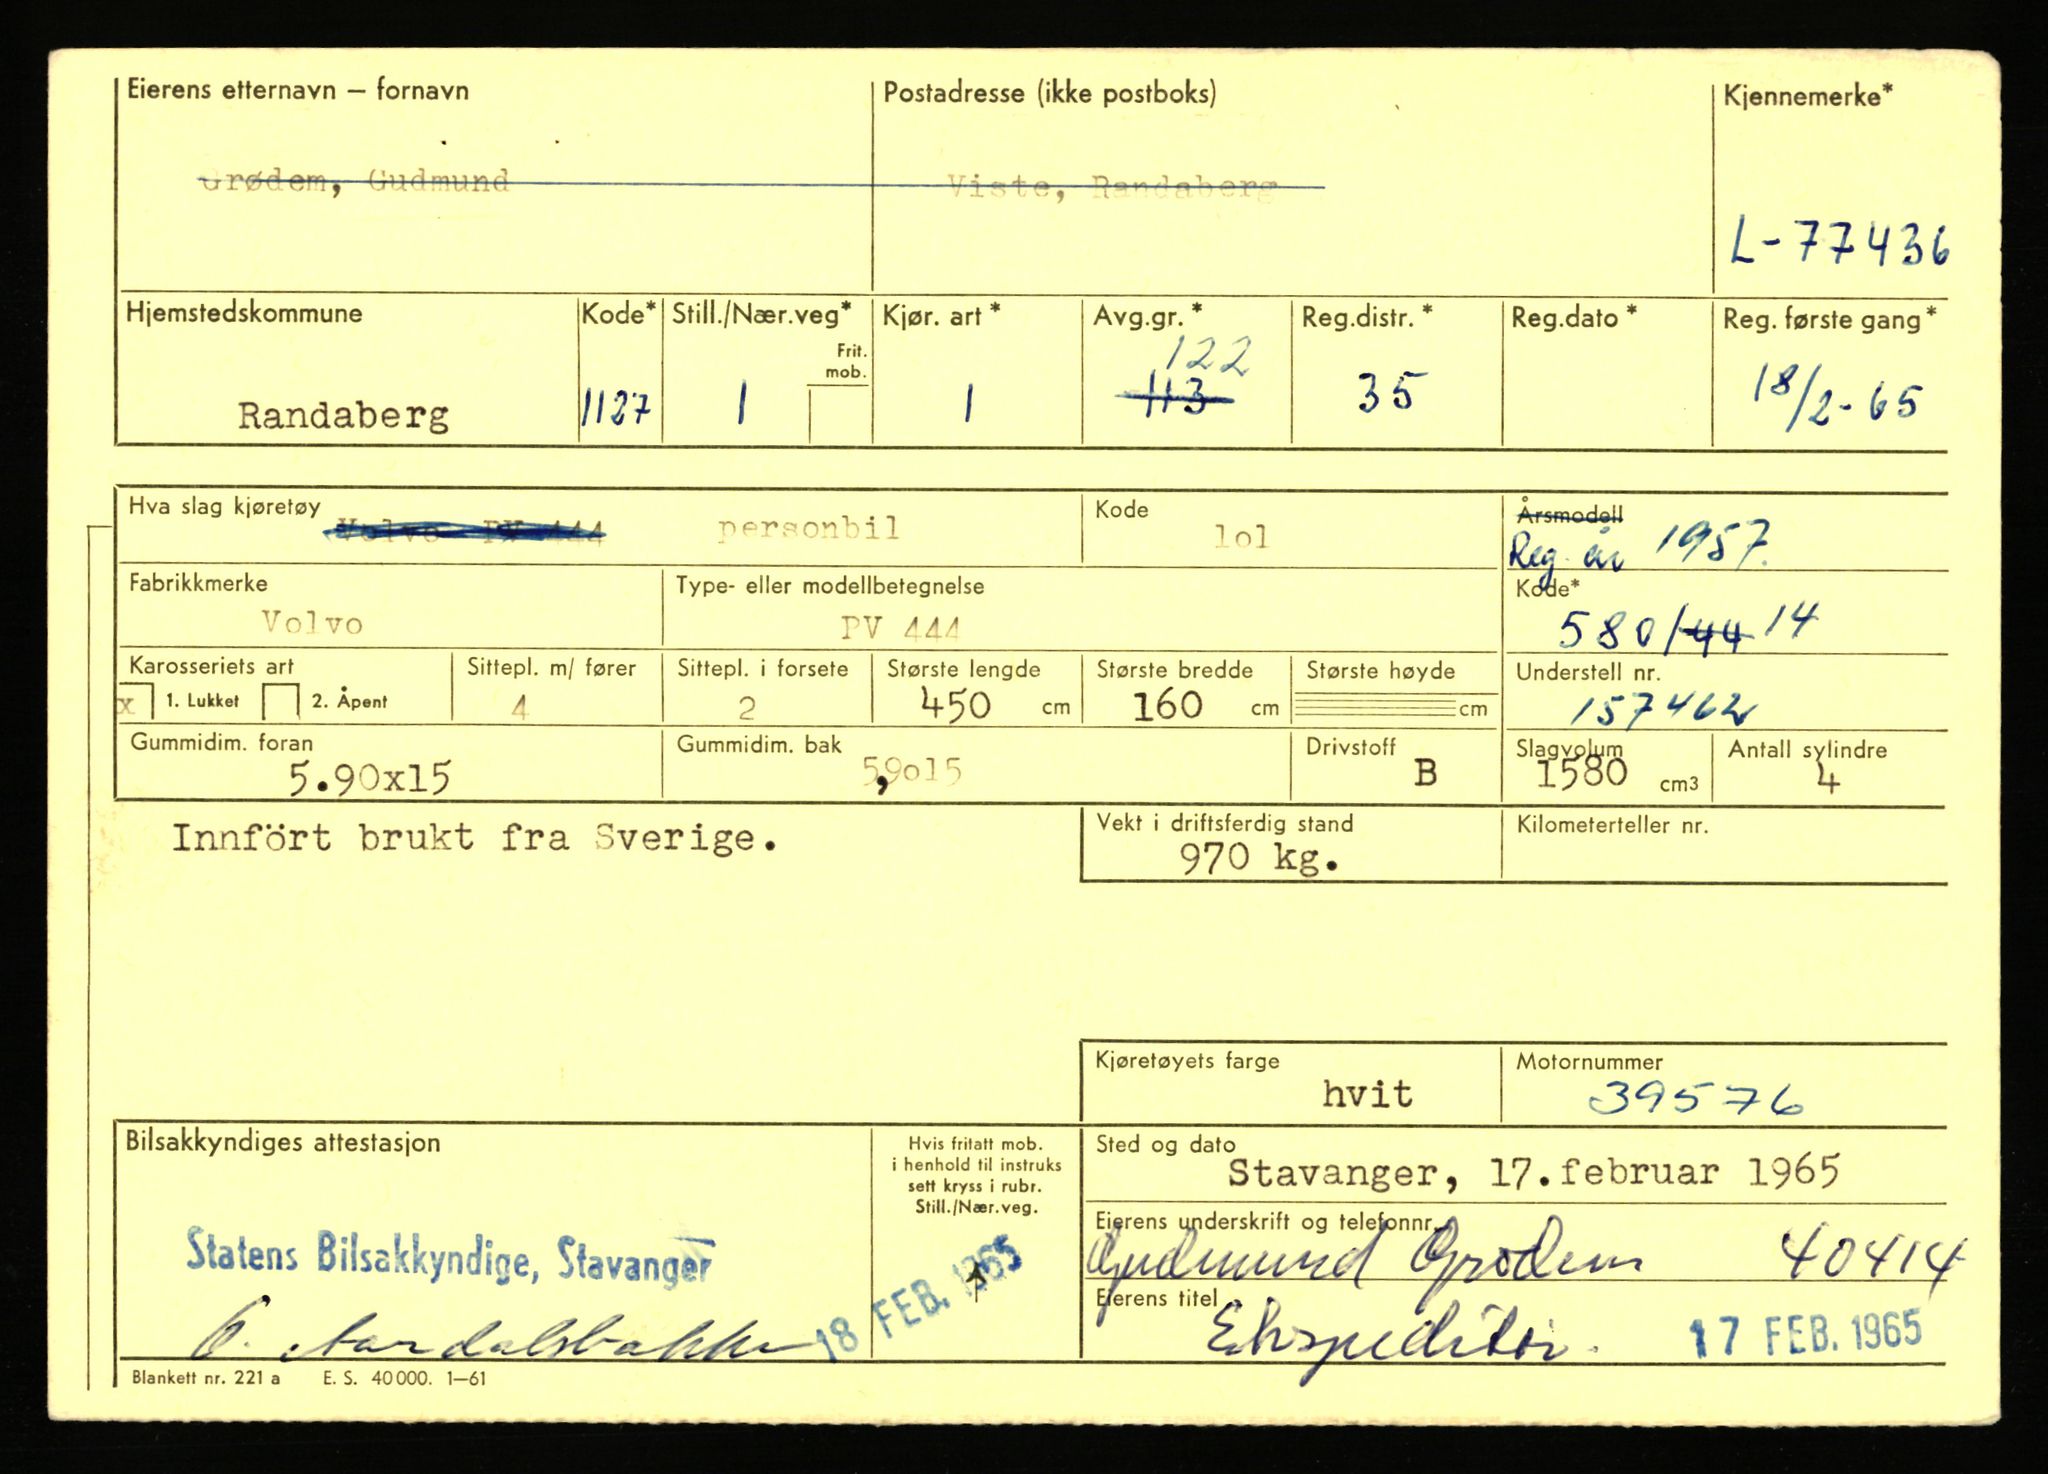 Eierens etternavn – fornavn
Postadresse (ikke postboks)
Kjennemerke*
Grødem, Gudmund
Viste, Randaberg
L-77436
Hjemstedskommune
Kode*
Still./Nær.veg*
Kjør. art *
Avg.gr. *
Reg.distr. *
Reg.dato *
Reg. første gang *
Frit.
mob.
122
Randaberg
1127
1
1
113
35
18/2-65
Hva slag kjøretøy
Volvo PV 444
personbil
Kode
lol
Årsmodell
Reg. år 1957.
Fabrikkmerke
Volvo
Type- eller modellbetegnelse
PV 444
Kode*
580/44 14
Karosseriets art
x 1. Lukket
2. Åpent
Sittepl. m/ fører
4
Sittepl. i forsete
2
Største lengde
450 cm
Største bredde
160 cm
Største høyde
cm
Understell nr.
157462
Gummidim. foran
5.90x15
Gummidim. bak
5,9o15
Drivstoff
B
Slagvolum
1580 cm3
Antall sylindre
4
Innfört brukt fra Sverige.
Vekt i driftsferdig stand
970 kg.
Kilometerteller nr.
Kjøretøyets farge
hvit
Motornummer
39576
Bilsakkyndiges attestasjon
Hvis fritatt mob.
i henhold til instruks
sett kryss i rubr.
Still./Nær.veg.
Sted og dato
Stavanger, 17.februar 1965
Statens Bilsakkyndige, Stavanger
18 FEB. 1965
Eierens underskrift og telefonnr.
Gudmund Grødem 40414
Eierens titel
Ekspeditør.
17 FEB. 1965
Blankett nr. 221 a E. S. 40 000. 1–61